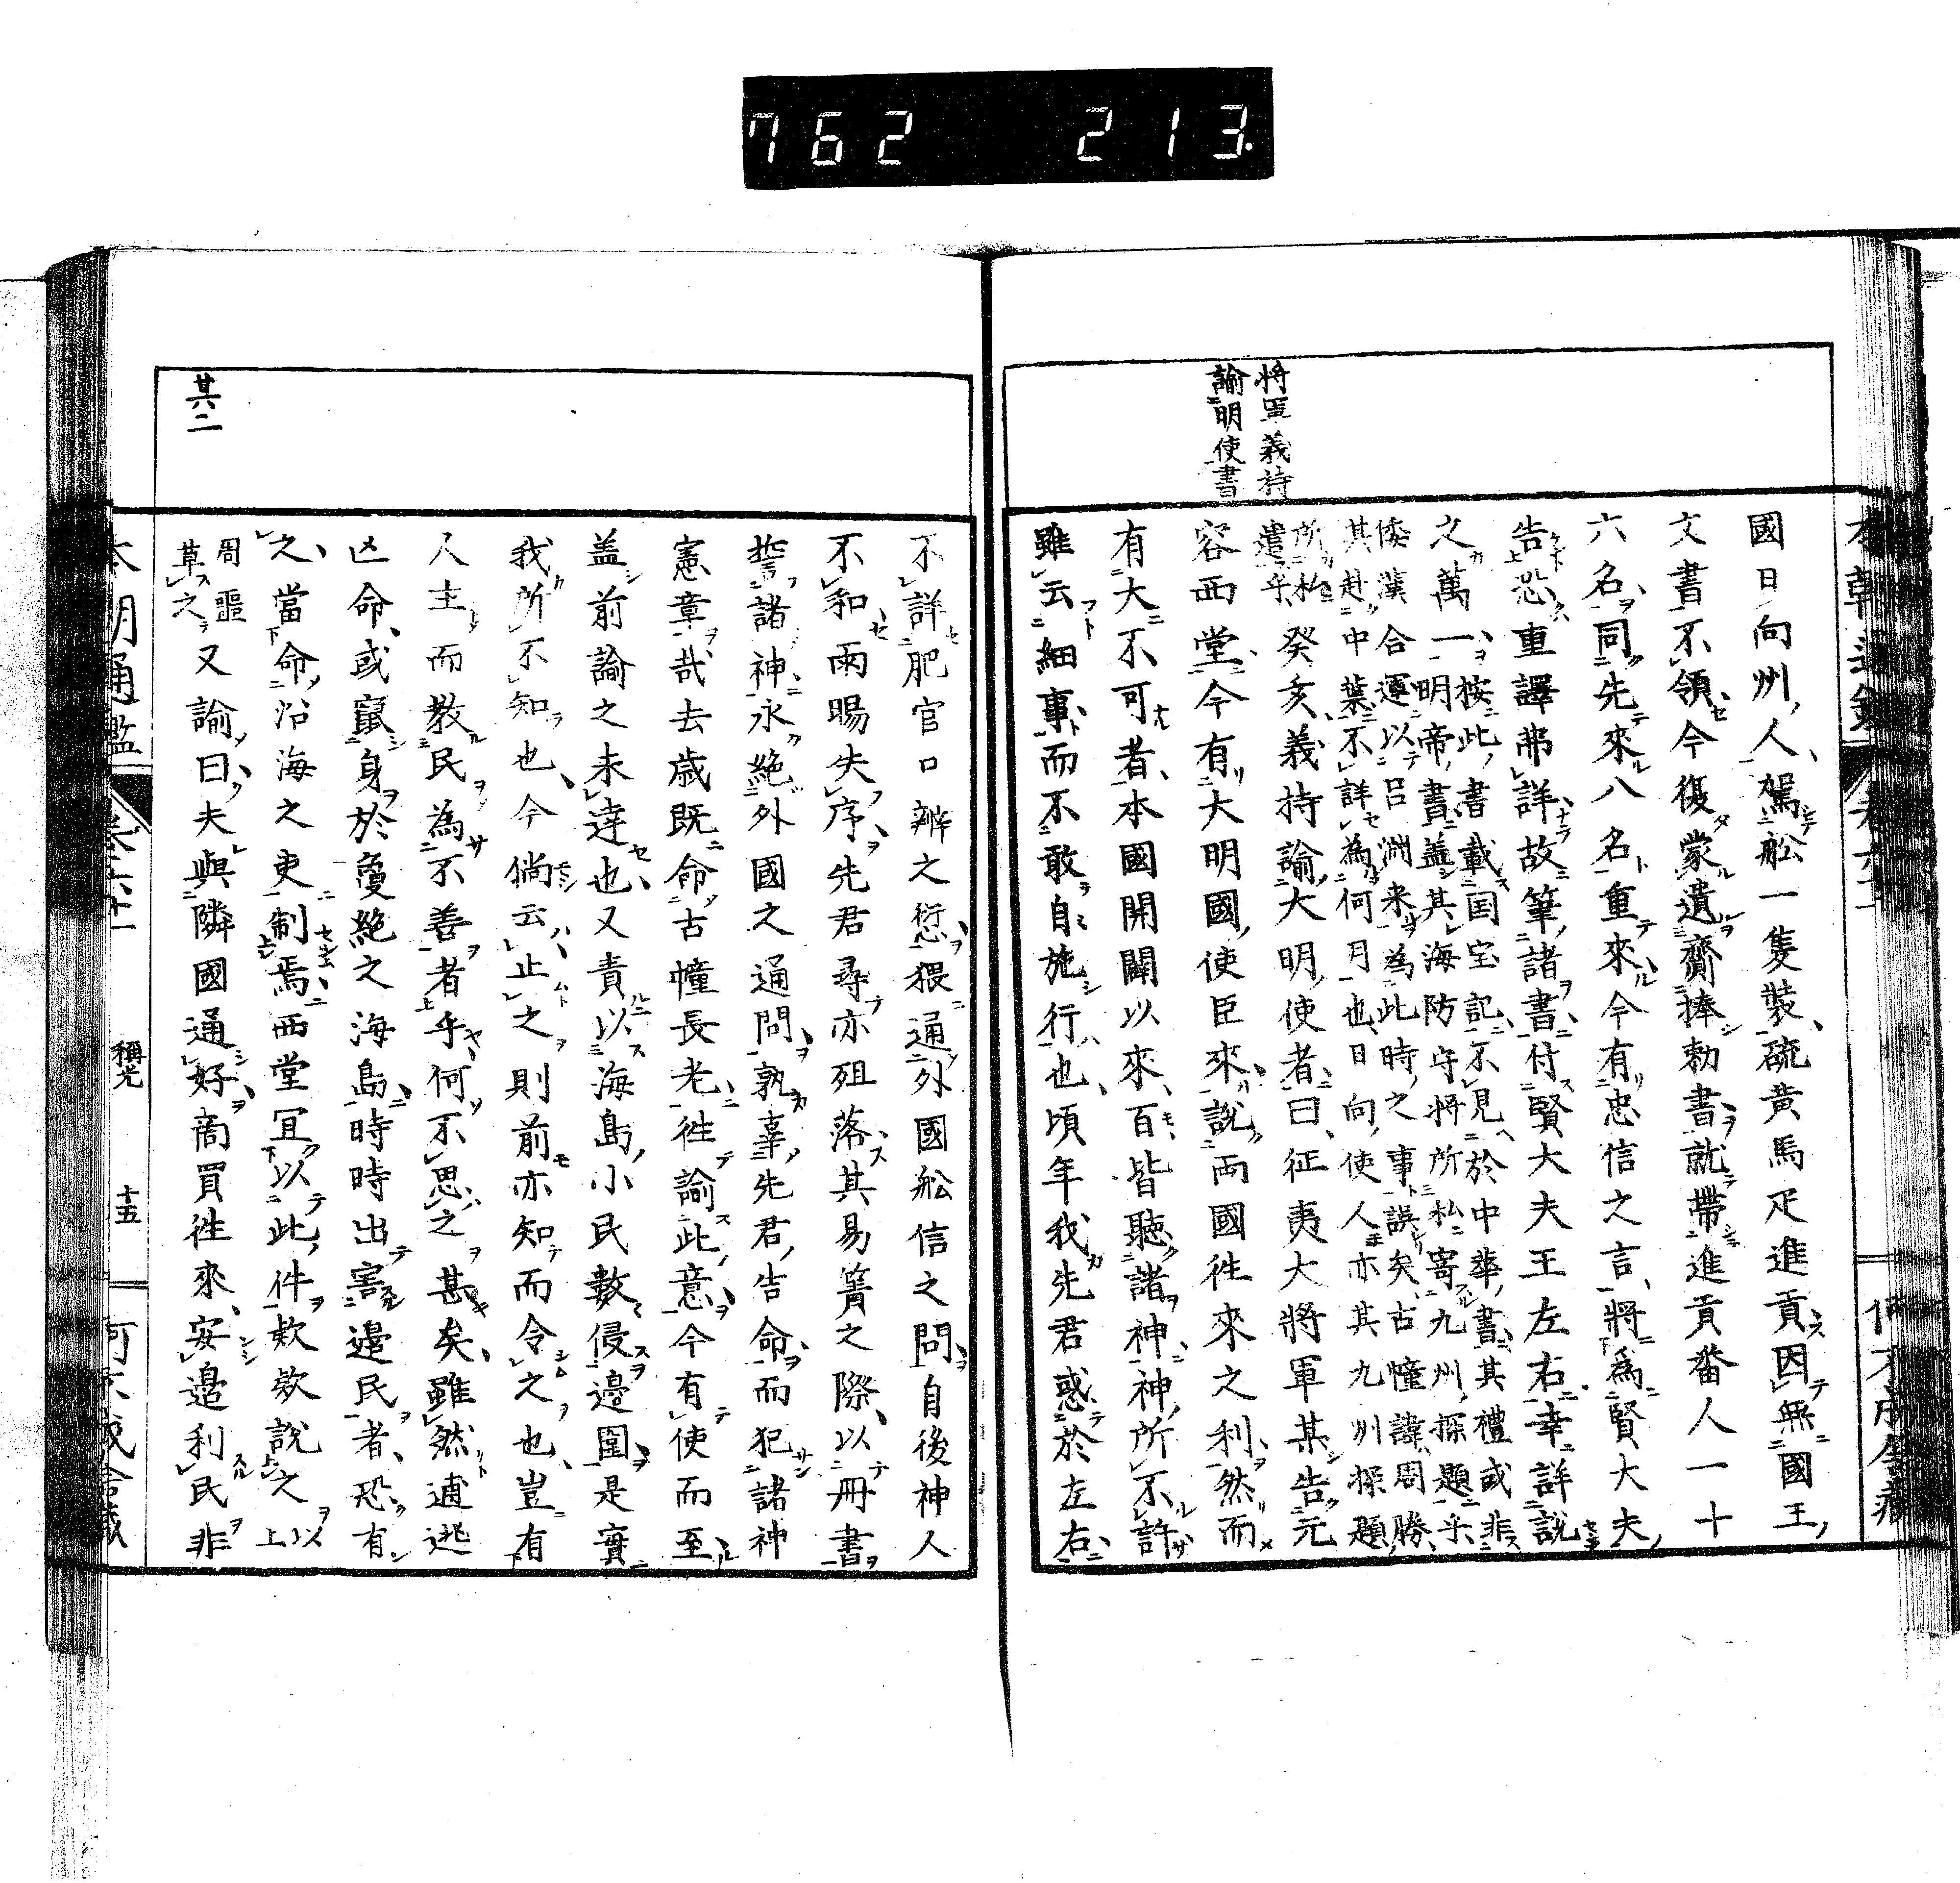 762 213.
將軍義持
諭明使書
國日向州人駕舩一隻裝硫黄馬疋進貢因無國王
文書不領今復蒙遺齎捧勅書就帶進貢畨人一十
六名同先來八名重來今有忠信之言將為賢大夫
告恐重譯弗詳故筆諸書付賢大夫王左右幸詳説
之萬一明帝書盖其海防守將所私寄九州探題乎
按此書載国宝記不見於中華書其禮或非
倭漢合運以呂淵来為此時之事誤矣古幢諱周勝
其赴中葉不詳為何月也日向使人亦其九州探題
所松
遣乎癸亥義持諭大明使者曰征夷大將軍某告元
容西堂今有大明國使臣來説両國徃來之利然而
有大不可者本國開闢以來百皆聽諸神神所不許
雖云細事而不敢自施行也頃年我先君惑於左右
不詳肥官口辨之愆猥通外國舩信之問自後神人
不和雨暘失序先君尋亦殂落其易簀之際以冊書
誓諸神永絶外國之通問孰辜先君告命而犯諸神
憲章哉去歳既命古幢長老徃諭此意今有使而至
盖前諭之未達也又責以海島小民數侵邉圉是實
我所不知也今倘云止之則前亦知而令之也豈有
人主而教民為不善者乎何不思之甚矣雖然逋逃
亡命或竄身於夐絶之海島時時出害邉民者恐有
之當命沿海之吏制焉西堂冝以此件欵欵説之以上
周噩
草之又諭曰夫與隣國通好商買徃來安邉利民非
其二
稱光
十五